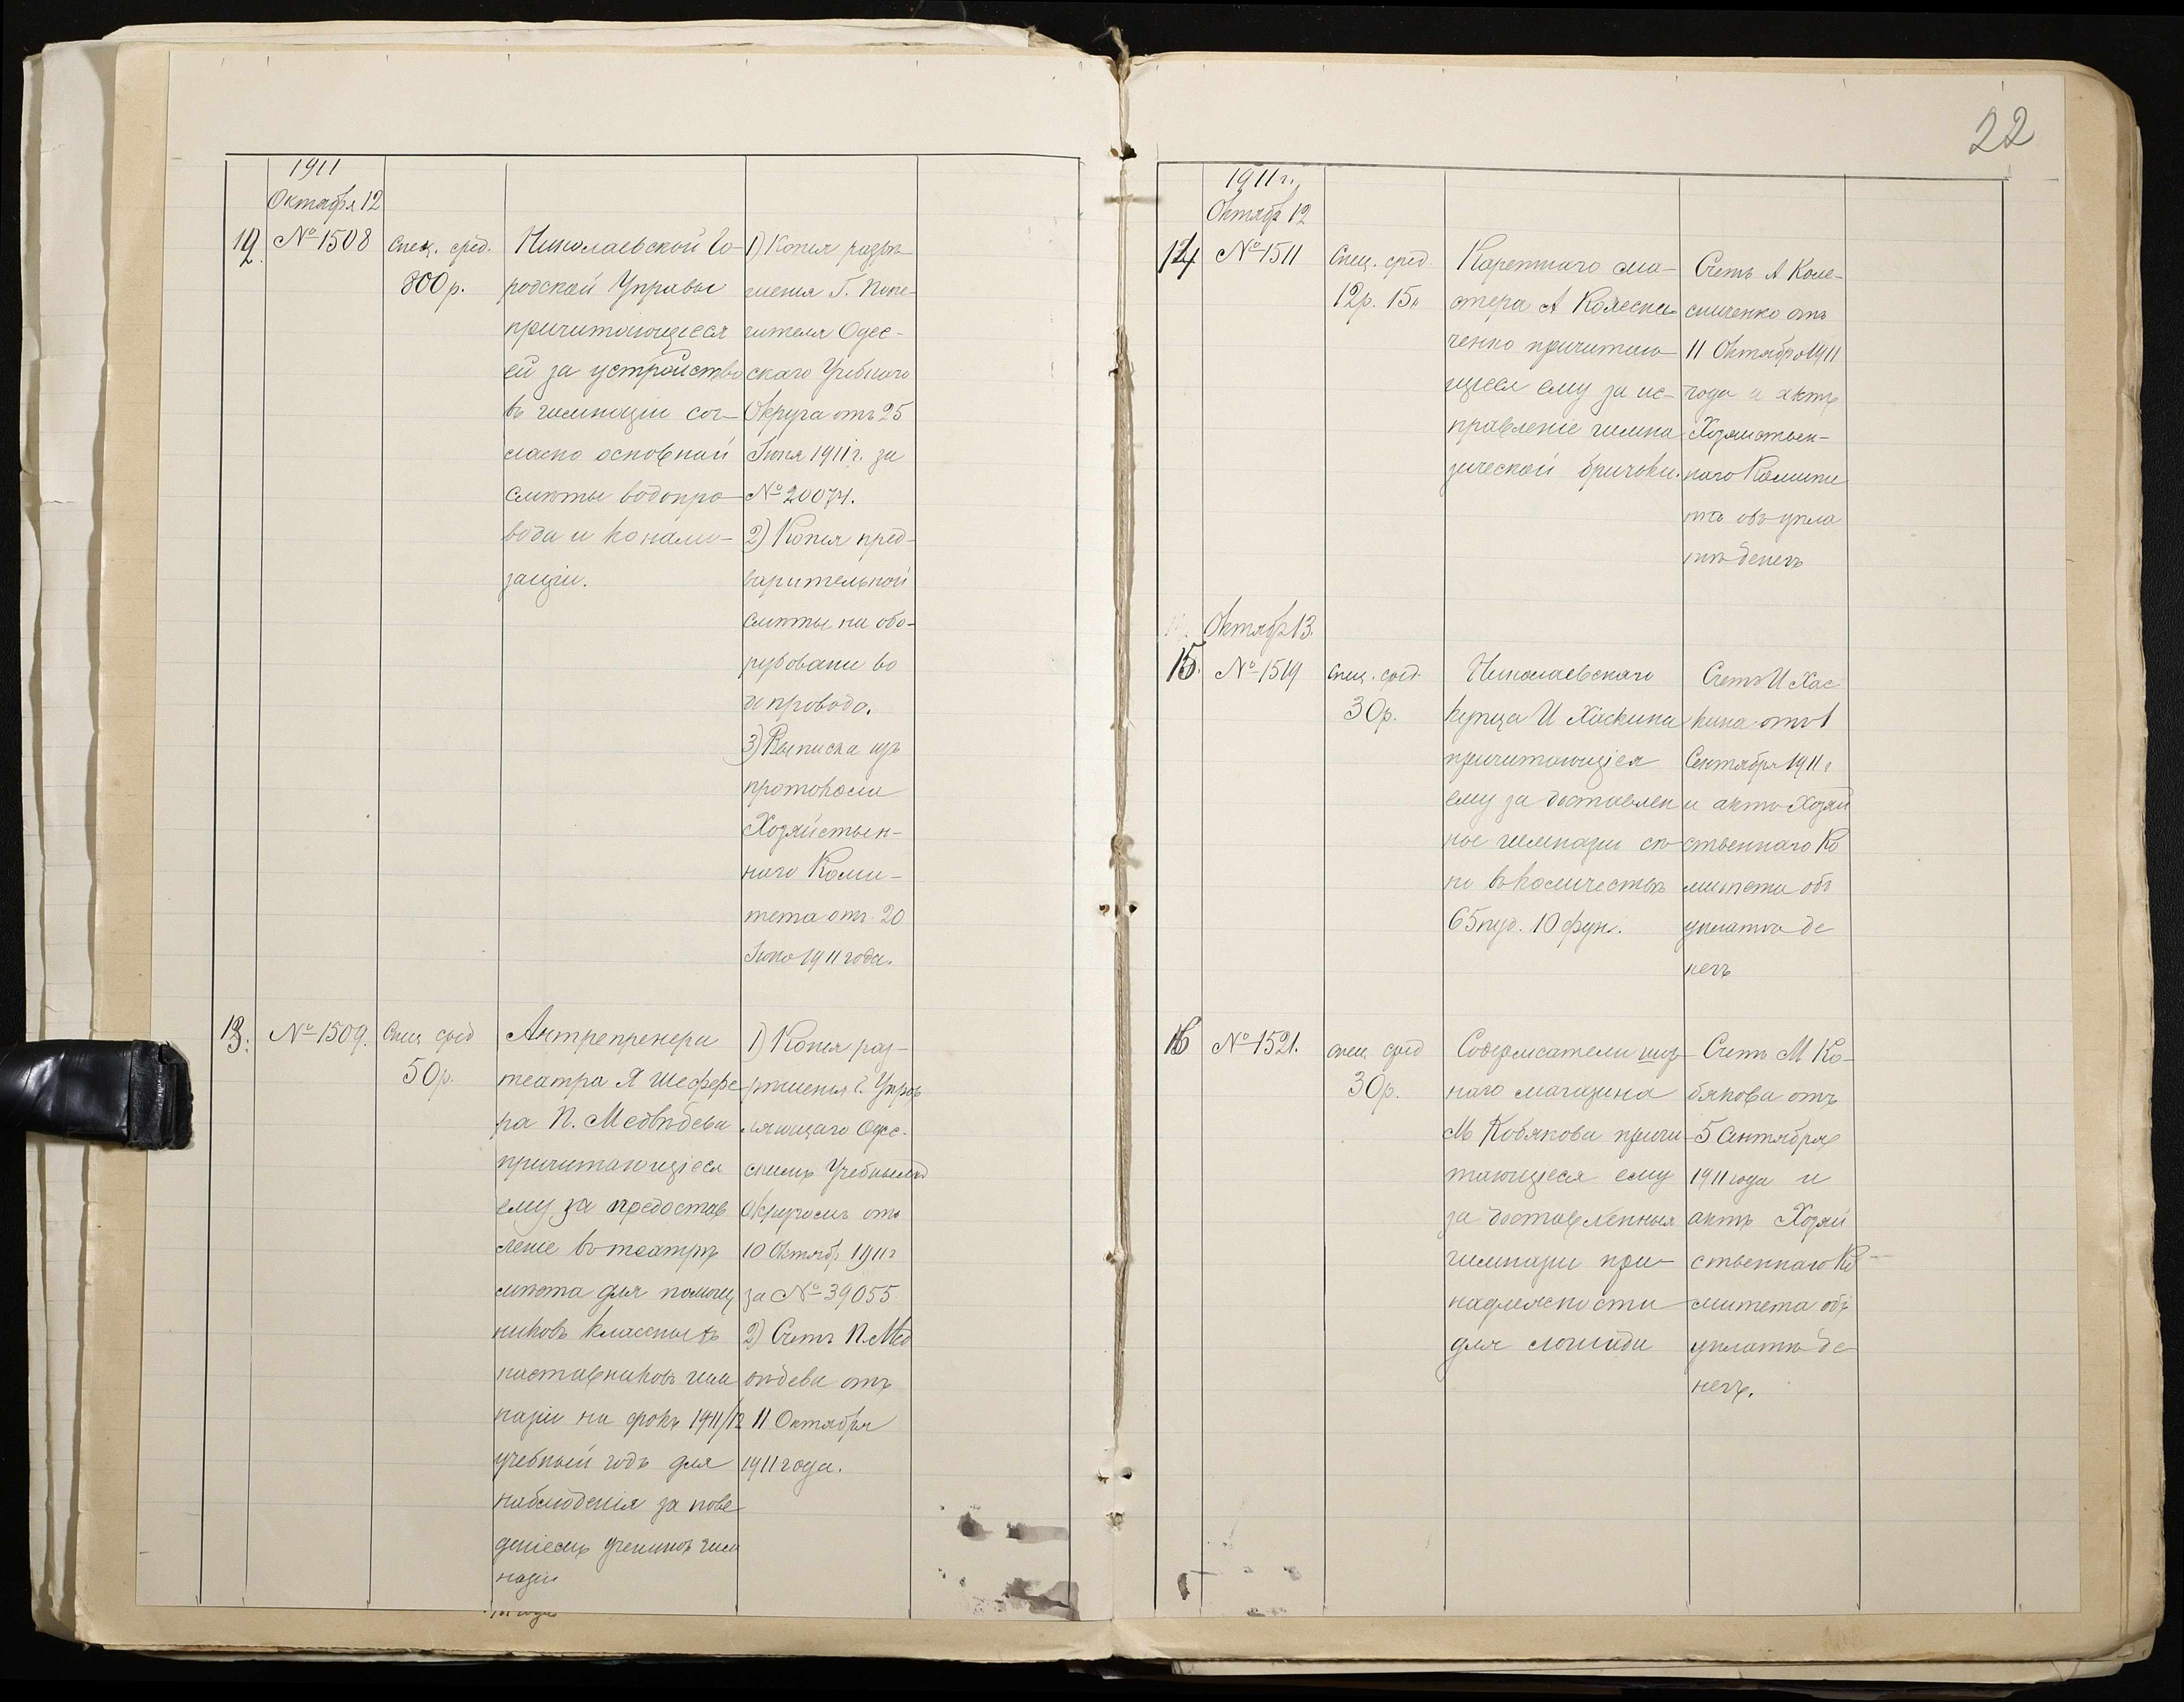 22
1911
Октября 12
12. № 1508
Спец. сред.
800 р.
Николаевской Го-
родской Управы
причитающіеся
ей за устройство
въ гимназіи сог-
ласно основной
смѣты водопро-
вода и канали-
заціи.
1) Копія разрѣ-
шенія Г. Попе-
чителя Одес-
скаго Учебнаго
Округа отъ 25
Іюня 1911 г. за
№ 20074.
2) Копія пред-
варительной
смѣты на обо-
рудованіе во
допровода.
3) Выписка изъ
протокола
Хозяйствен-
наго Коми-
тета отъ 20
1911 года.
13. № 1509.
Спец сред
50 р.
Антрепренера
театра Я Шеффе
ра П. Медвѣдева
причитающіеся
ему за предостав
леніе въ театрѣ
мѣста для помощ
никовъ классныхъ
наставниковъ гим
назіи на срокъ 1911/12
учебный годъ для
наблюденія за пове
деніемъ учениковъ гим
назіи
1) Копія раз-
рѣшенія Г. Управ
ляющаго Одес-
скимъ Учебнымъ
Округомъ отъ
10 Октяб. 1911 г
за № 39055.
2) Счетъ П. Мед
вѣдева отъ
11 Октября
1911 года.
1911 г.
Октяб 12
14 № 1511
Спец. сред.
12 р. 15 к
Каретнаго ма-
стера А Колесни
ченко причитаю
щіеся ему за ис-
правленіе гимна
зической брички.
Счетъ А Коле-
сниченко отъ
11 Октября 1911
года и актъ
Хозяйствен-
наго Комите
та объ упла
тѣ денегъ
Октяб 13.
15. № 1519
Спец. сред.
30 р.
Николаевскаго
купца И Хаскина
причитающіеся
ему за доставлен
ное гимназіи сѣ
но въ количествѣ
65 пуд. 10 фун.
Счетъ И Хас
кина отъ 1
Сентября 1911 г
и актъ Хозяй
ственнаго Ко
митета объ
уплатѣ де
негъ
16 № 1521.
спец сред
30 р.
Содержателя
наго магазина
М Кобякова причи
тающіеся ему
за доставленныя
гимназіи при-
надлежности
для лошади
Счетъ М Ко-
бякова отъ
5 Сентября
1911 года и
актъ Хозяй
ственнаго Ко
митета объ
уплатѣ де
негъ.